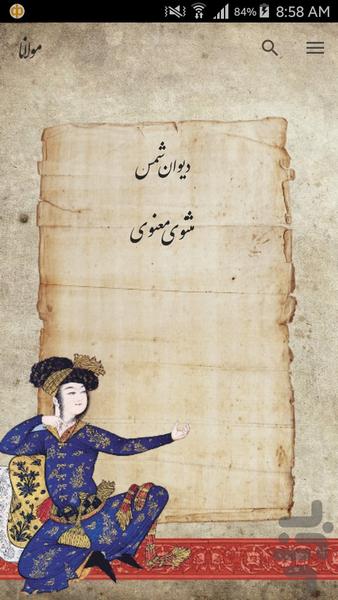 84% 8:58 AM
مولانا
دیوان شمس
مثنوی معنوی
بازار